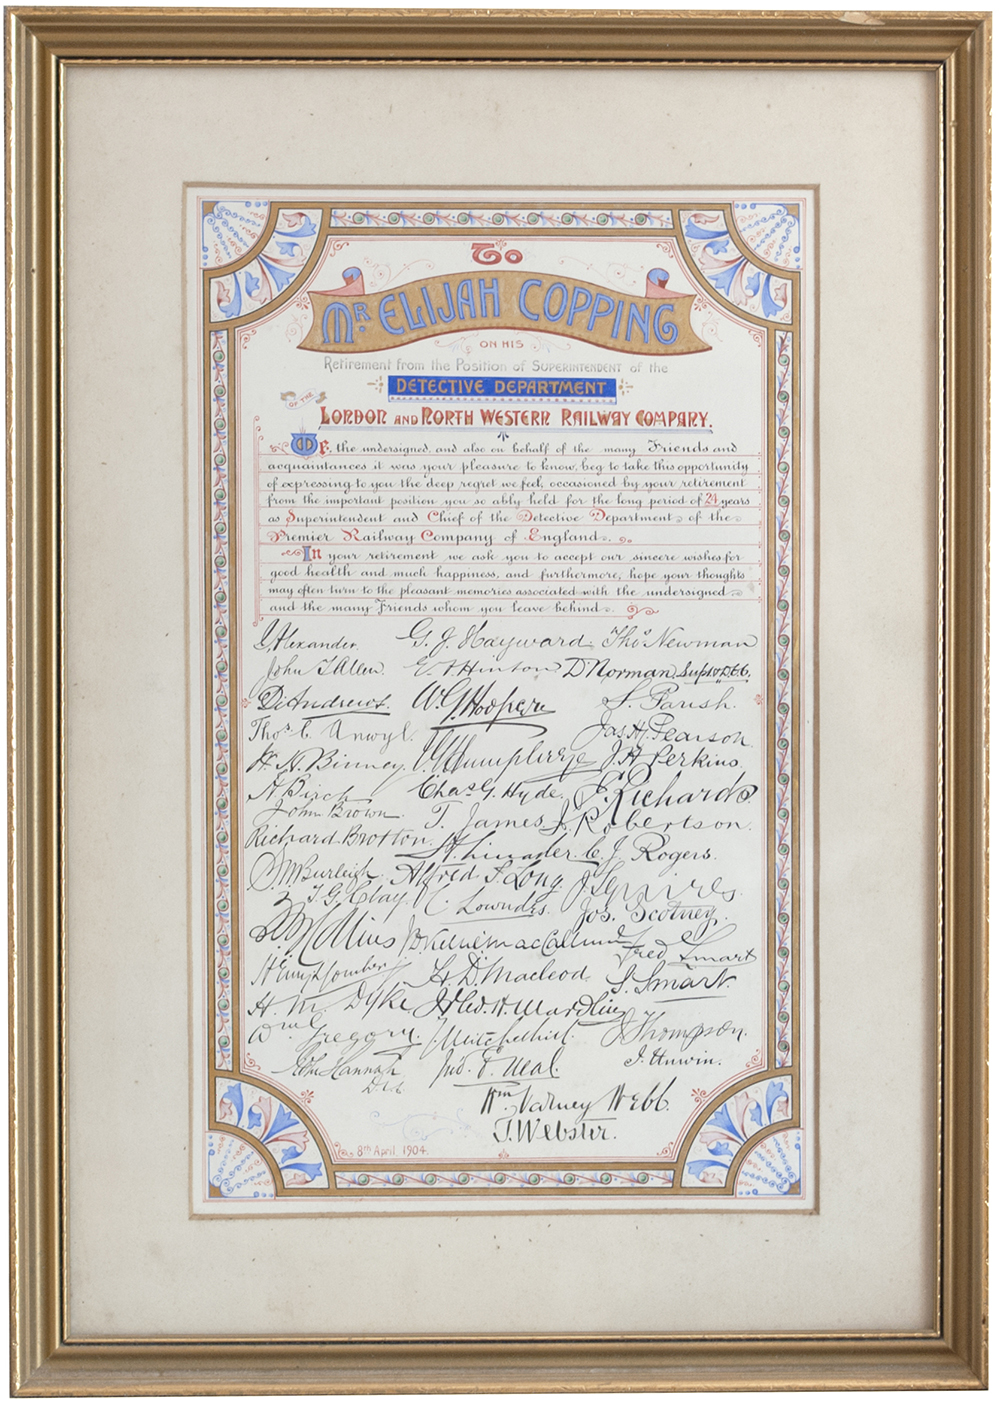 To
Mr. Elijah Copping
ON HIS
Retirement from the Position of SUPERINTENDENT of the
DETECTIVE DEPARTMENT
OF THE
London and North Western Railway Company.
We, the undersigned, and also on behalf of the many Friends and
acquaintances it was your pleasure to know, beg to take this opportunity
of expressing to you the deep regret we feel, occasioned by your retirement
from the important position you so ably held for the long period of 24 years
as Superintendent and Chief of the Detective Department of the
Premier Railway Company of England.
In your retirement we ask you to accept our sincere wishes for
good health and much happiness, and furthermore, hope your thoughts
may often turn to the pleasant memories associated with the undersigned
and the many Friends whom you leave behind.
Alexander.
John T Allen.
D. Andrews.
Thos. C. Anwyl.
H. N. Binney.
H Birch
John Brown.
Richard Brotton.
Burleigh.
T. G. Clay.
Collins
H. M. Dyke
Wm. Gregory.
John Hannah
G. J. Hayward.
E. T. Hinton
W. G. Hooper
Humphreys
Chas. G. Hyde.
T. James
Alfred J. Long.
Lowndes.
MacCallum
H. D. Macleod
J. Mitchell
Jno. E. Neal.
Thos. Newman
D Norman. Supt.
S. Parish.
Jas. H. Pearson
J. H. Perkins.
E. Richards.
J. Robertson.
C. J. Rogers.
J. Squires.
Jos. Scotney.
Fred Smart
S. Smart.
J Thompson.
J. Unwin.
Wm. Varney Webb.
J. Webster.
8th April 1904.